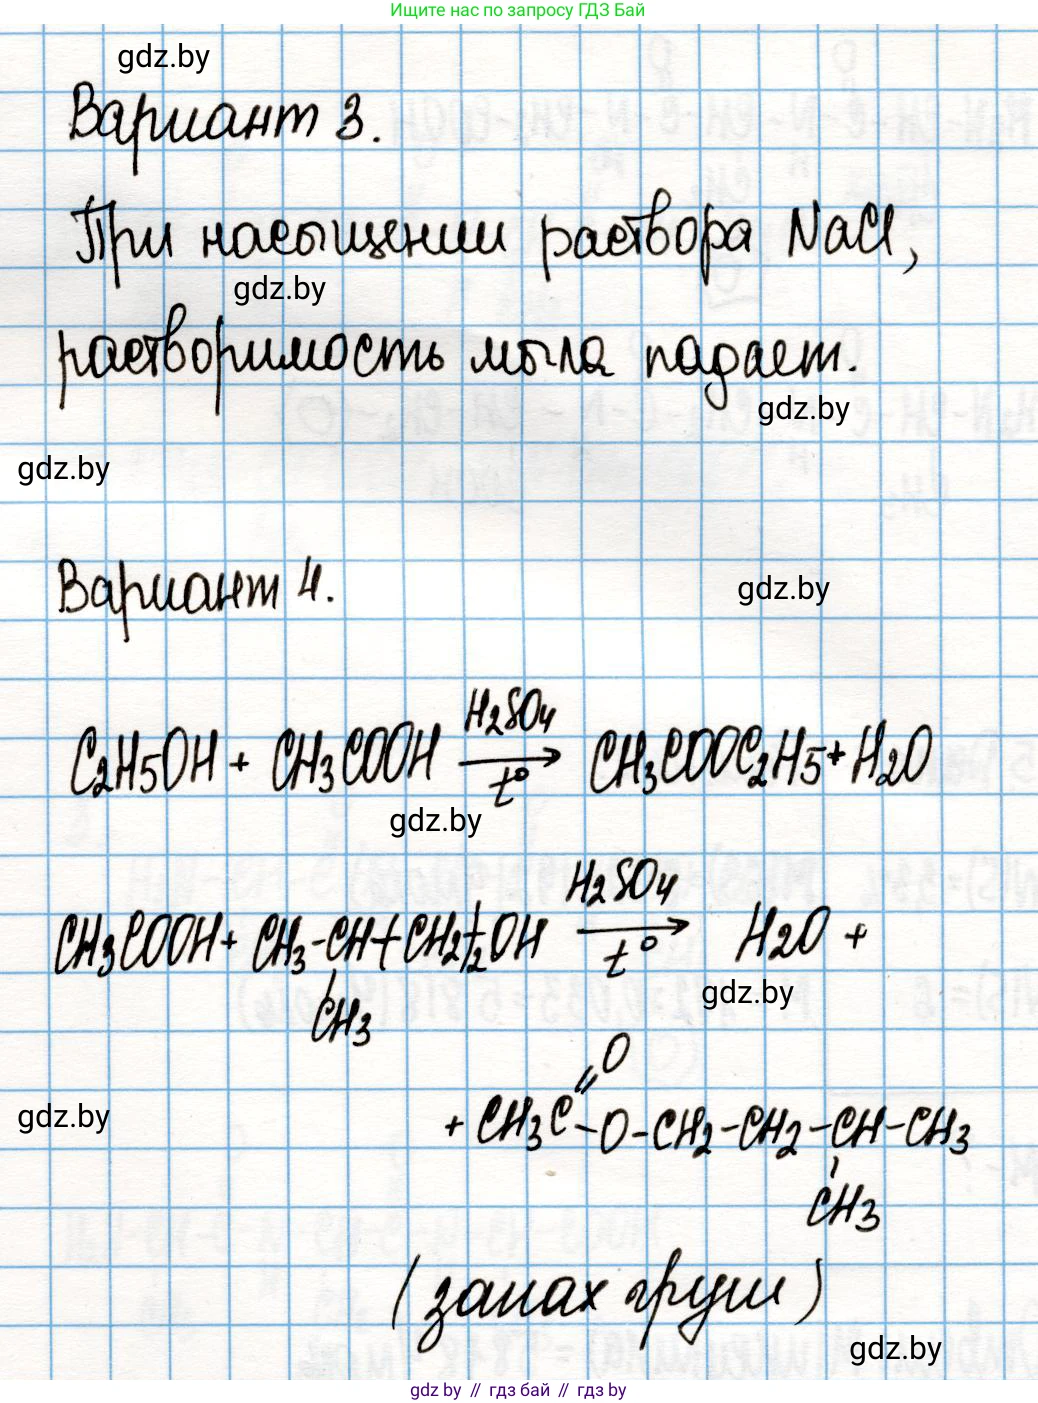 Ищите нас по запросу ГДЗ Бай
gdz.by
Вариант 3.
При насыщении раствора NaCl,
gdz.by
растворимость мыла падает.
gdz.by
gdz.by
Вариант 4.
gdz.by
H2SO4
C2H5OH + CH3COOH → CH3COOC2H5 + H2O
t°
gdz.by
H2SO4
CH3COOH + CH3-CH-(CH2)2OH → H2O +
t°
gdz.by
CH3
O
gdz.by
+ CH3C-O-CH2-CH2-CH-CH3
CH3
(запах груш)
gdz.by
gdz by // гдз бай // gdz by